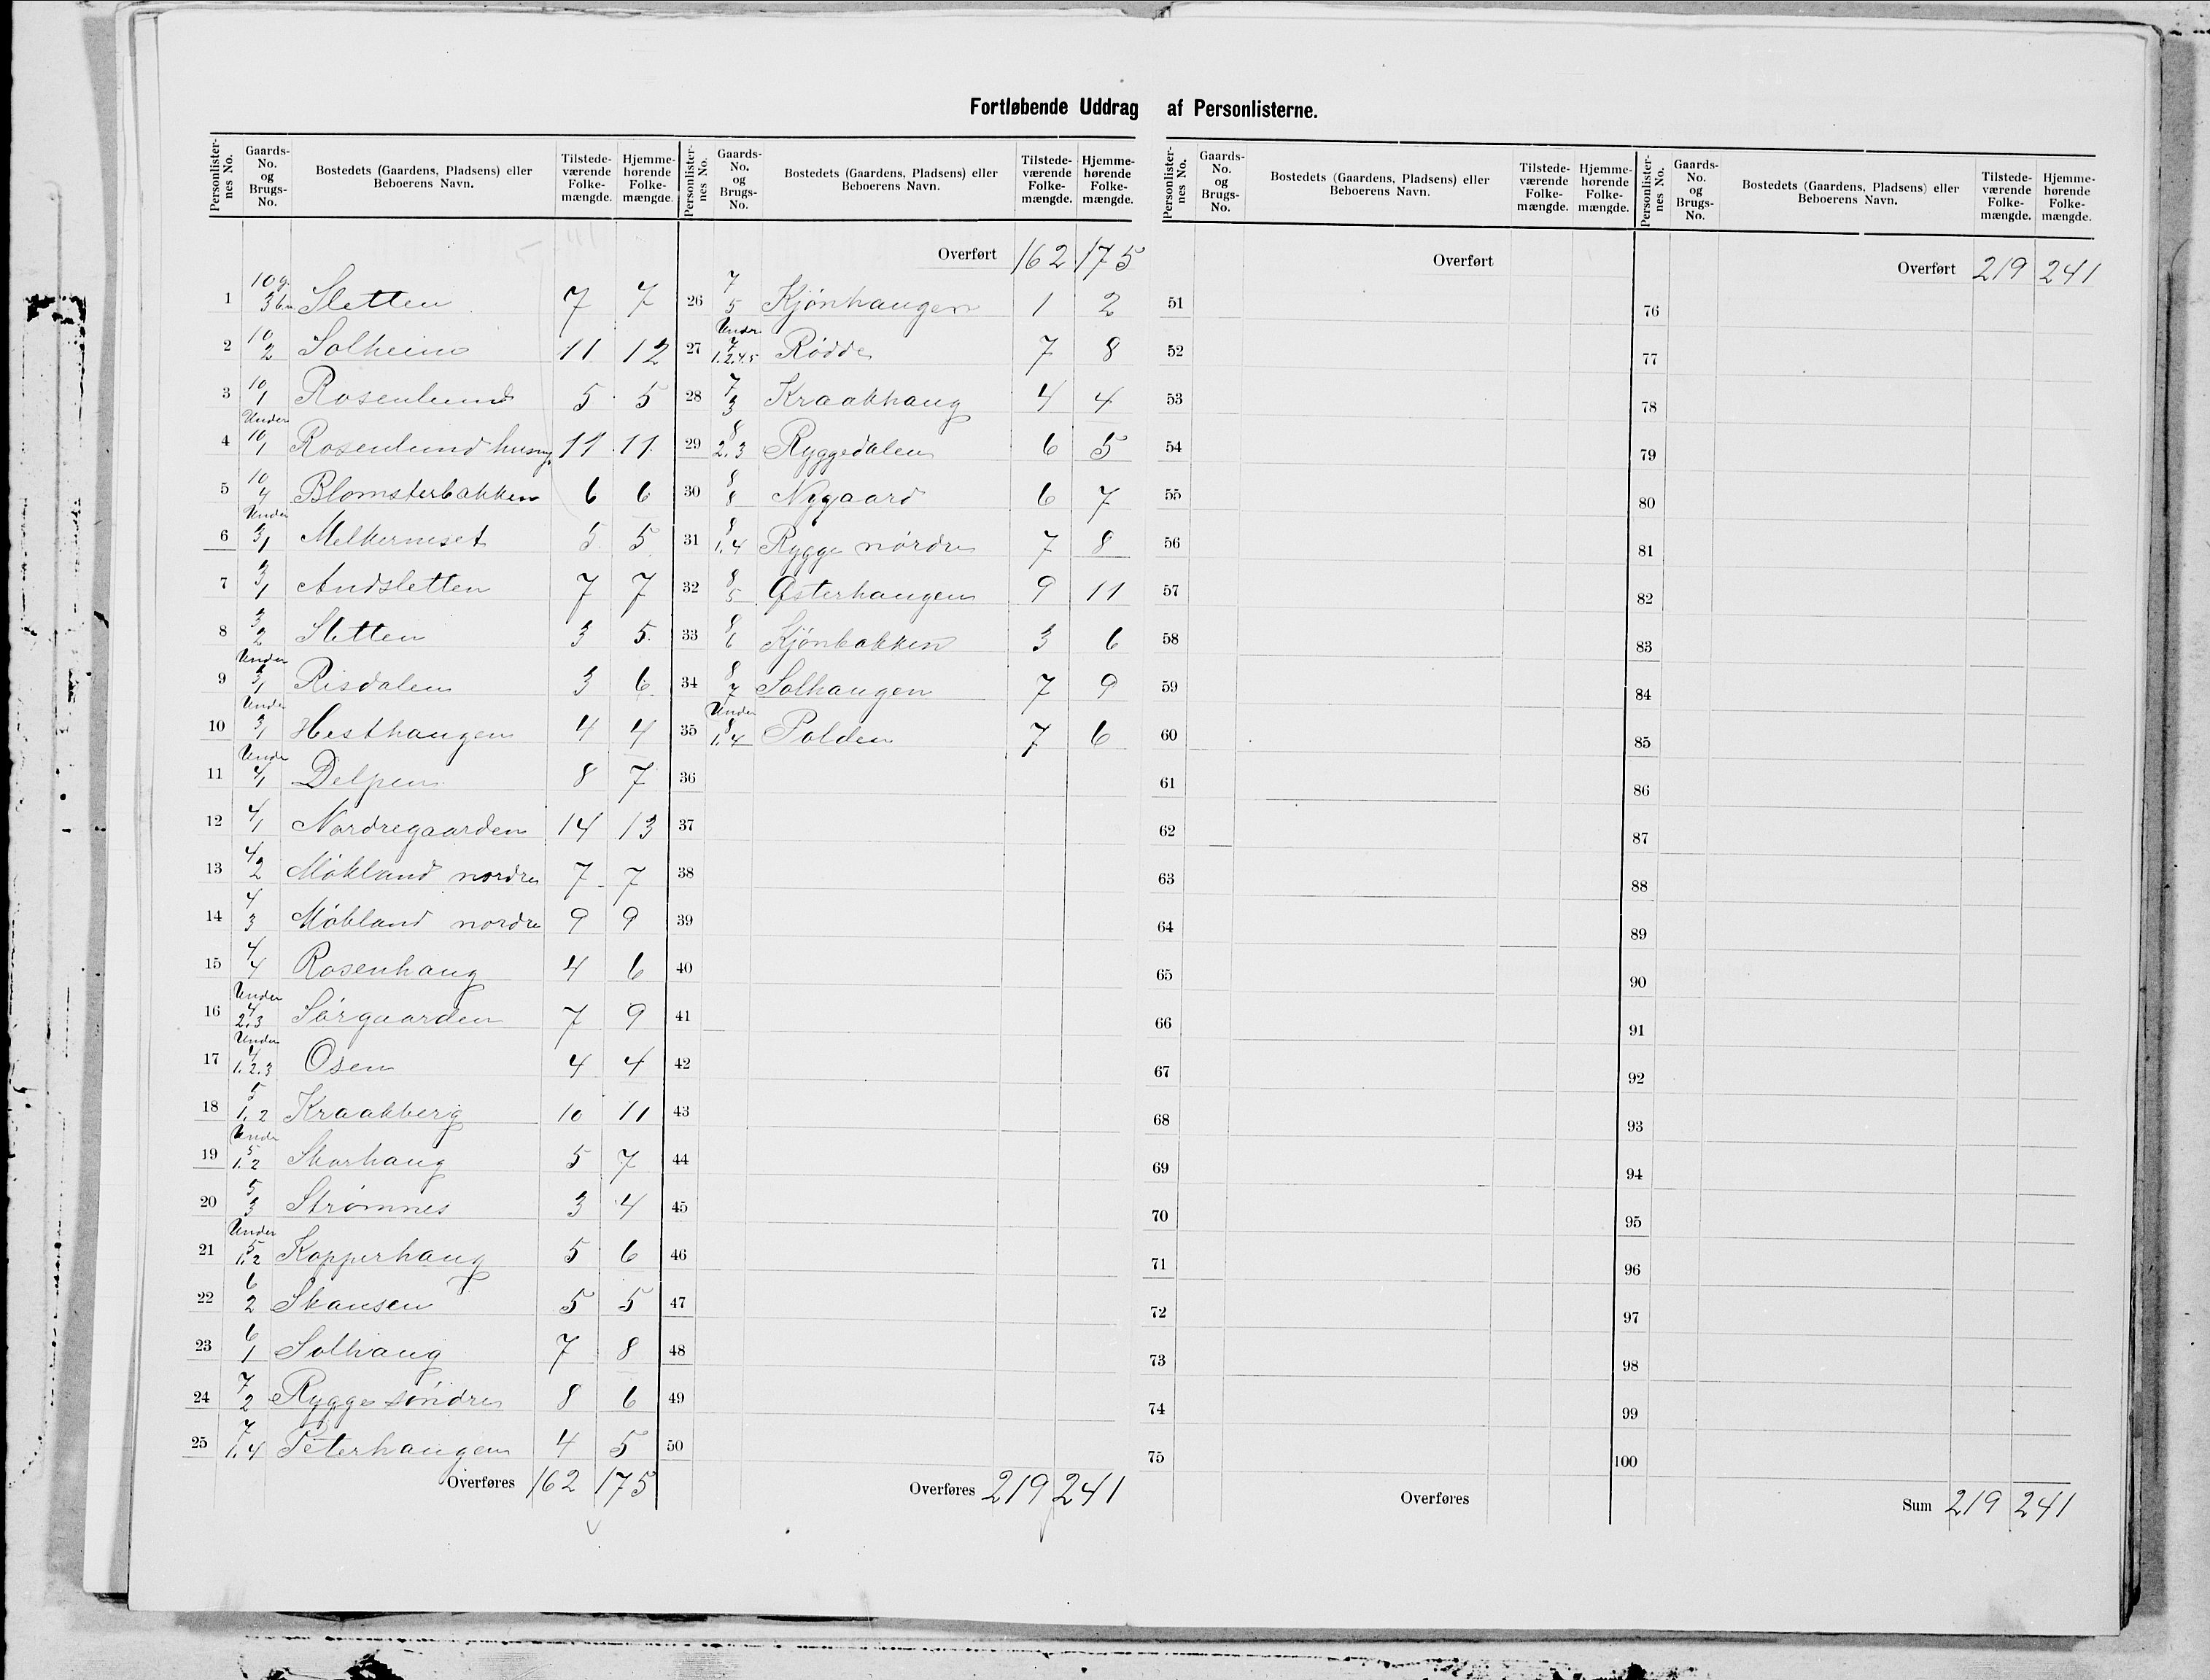 Fortløbende Uddrag af Personlisterne.
Personlister-nes No. Gaards-No. og Brugs-No. Bostedets (Gaardens, Pladsens) eller Beboerens Navn. Tilstede-værende Folke-mængde. Hjemme-hørende Folke-mængde.
1 10 g. 3 b. Sletten 7 7
2 10/2 Solheim 11 12
3 10/1 Rosenlund 5 5
4 Under 10/1 Rosenlund husm. 11 11
5 10/4 Blomsterbakken 6 6
6 Under 3/1 Melkerneset 5 5
7 3/1 Andsletten 7 7
8 3/2 Sletten 3 5
9 Under 3/1 Risdalen 3 6
10 Under 3/1 Hesthaugen 4 4
11 Under 4/1 Delpen 8 7
12 4/1 Nordregaarden 14 13
13 4/2 Møkland nordre 7 7
14 4/3 Møkland nordre 9 9
15 4/4 Rosenhaug 4 6
16 Under 4/2.3 Sørgaarden 7 9
17 Under 4/1.2.3 Osen 4 4
18 5/1.2 Kraakberg 10 11
19 Under 5/1.2 Skarhaug 5 7
20 5/3 Strømnes 3 4
21 Under 5/1.2 Kopperhaug 5 6
22 6/2 Skansen 5 5
23 6/1 Solhaug 7 8
24 7/2 Rygge søndre 8 6
25 7/1.4 Peterhaugen 4 5
Overføres 162 175
Personlister-nes No. Gaards-No. og Brugs-No. Bostedets (Gaardens, Pladsens) eller Beboerens Navn. Tilstede-værende Folke-mængde. Hjemme-hørende Folke-mængde.
Overført 162 175
26 7/5 Kjønhaugen 1 2
27 Under 7/1.2.4.5 Rødde 7 8
28 7/3 Kraakhaug 4 4
29 8/2.3 Ryggedalen 6 5
30 8/8 Nygaard 6 7
31 8/1.4 Rygge nørdre 7 8
32 8/5 Østerhaugen 9 11
33 8/6 Kjønbakken 3 6
34 8/7 Solhaugen 7 9
35 Under 8/1.4 Polden 7 6
36
37
38
39
40
41
42
43
44
45
46
47
48
49
50
Overføres 219 241
Personlister-nes No. Gaards-No. og Brugs-No. Bostedets (Gaardens, Pladsens) eller Beboerens Navn. Tilstede-værende Folke-mængde. Hjemme-hørende Folke-mængde.
Overført
51
52
53
54
55
56
57
58
59
60
61
62
63
64
65
66
67
68
69
70
71
72
73
74
75
Overføres
Personlister-nes No. Gaards-No. og Brugs-No. Bostedets (Gaardens, Pladsens) eller Beboerens Navn. Tilstede-værende Folke-mængde. Hjemme-hørende Folke-mængde.
Overført 219 241
76
77
78
79
80
81
82
83
84
85
86
87
88
89
90
91
92
93
94
95
96
97
98
99
100
Sum 219 241